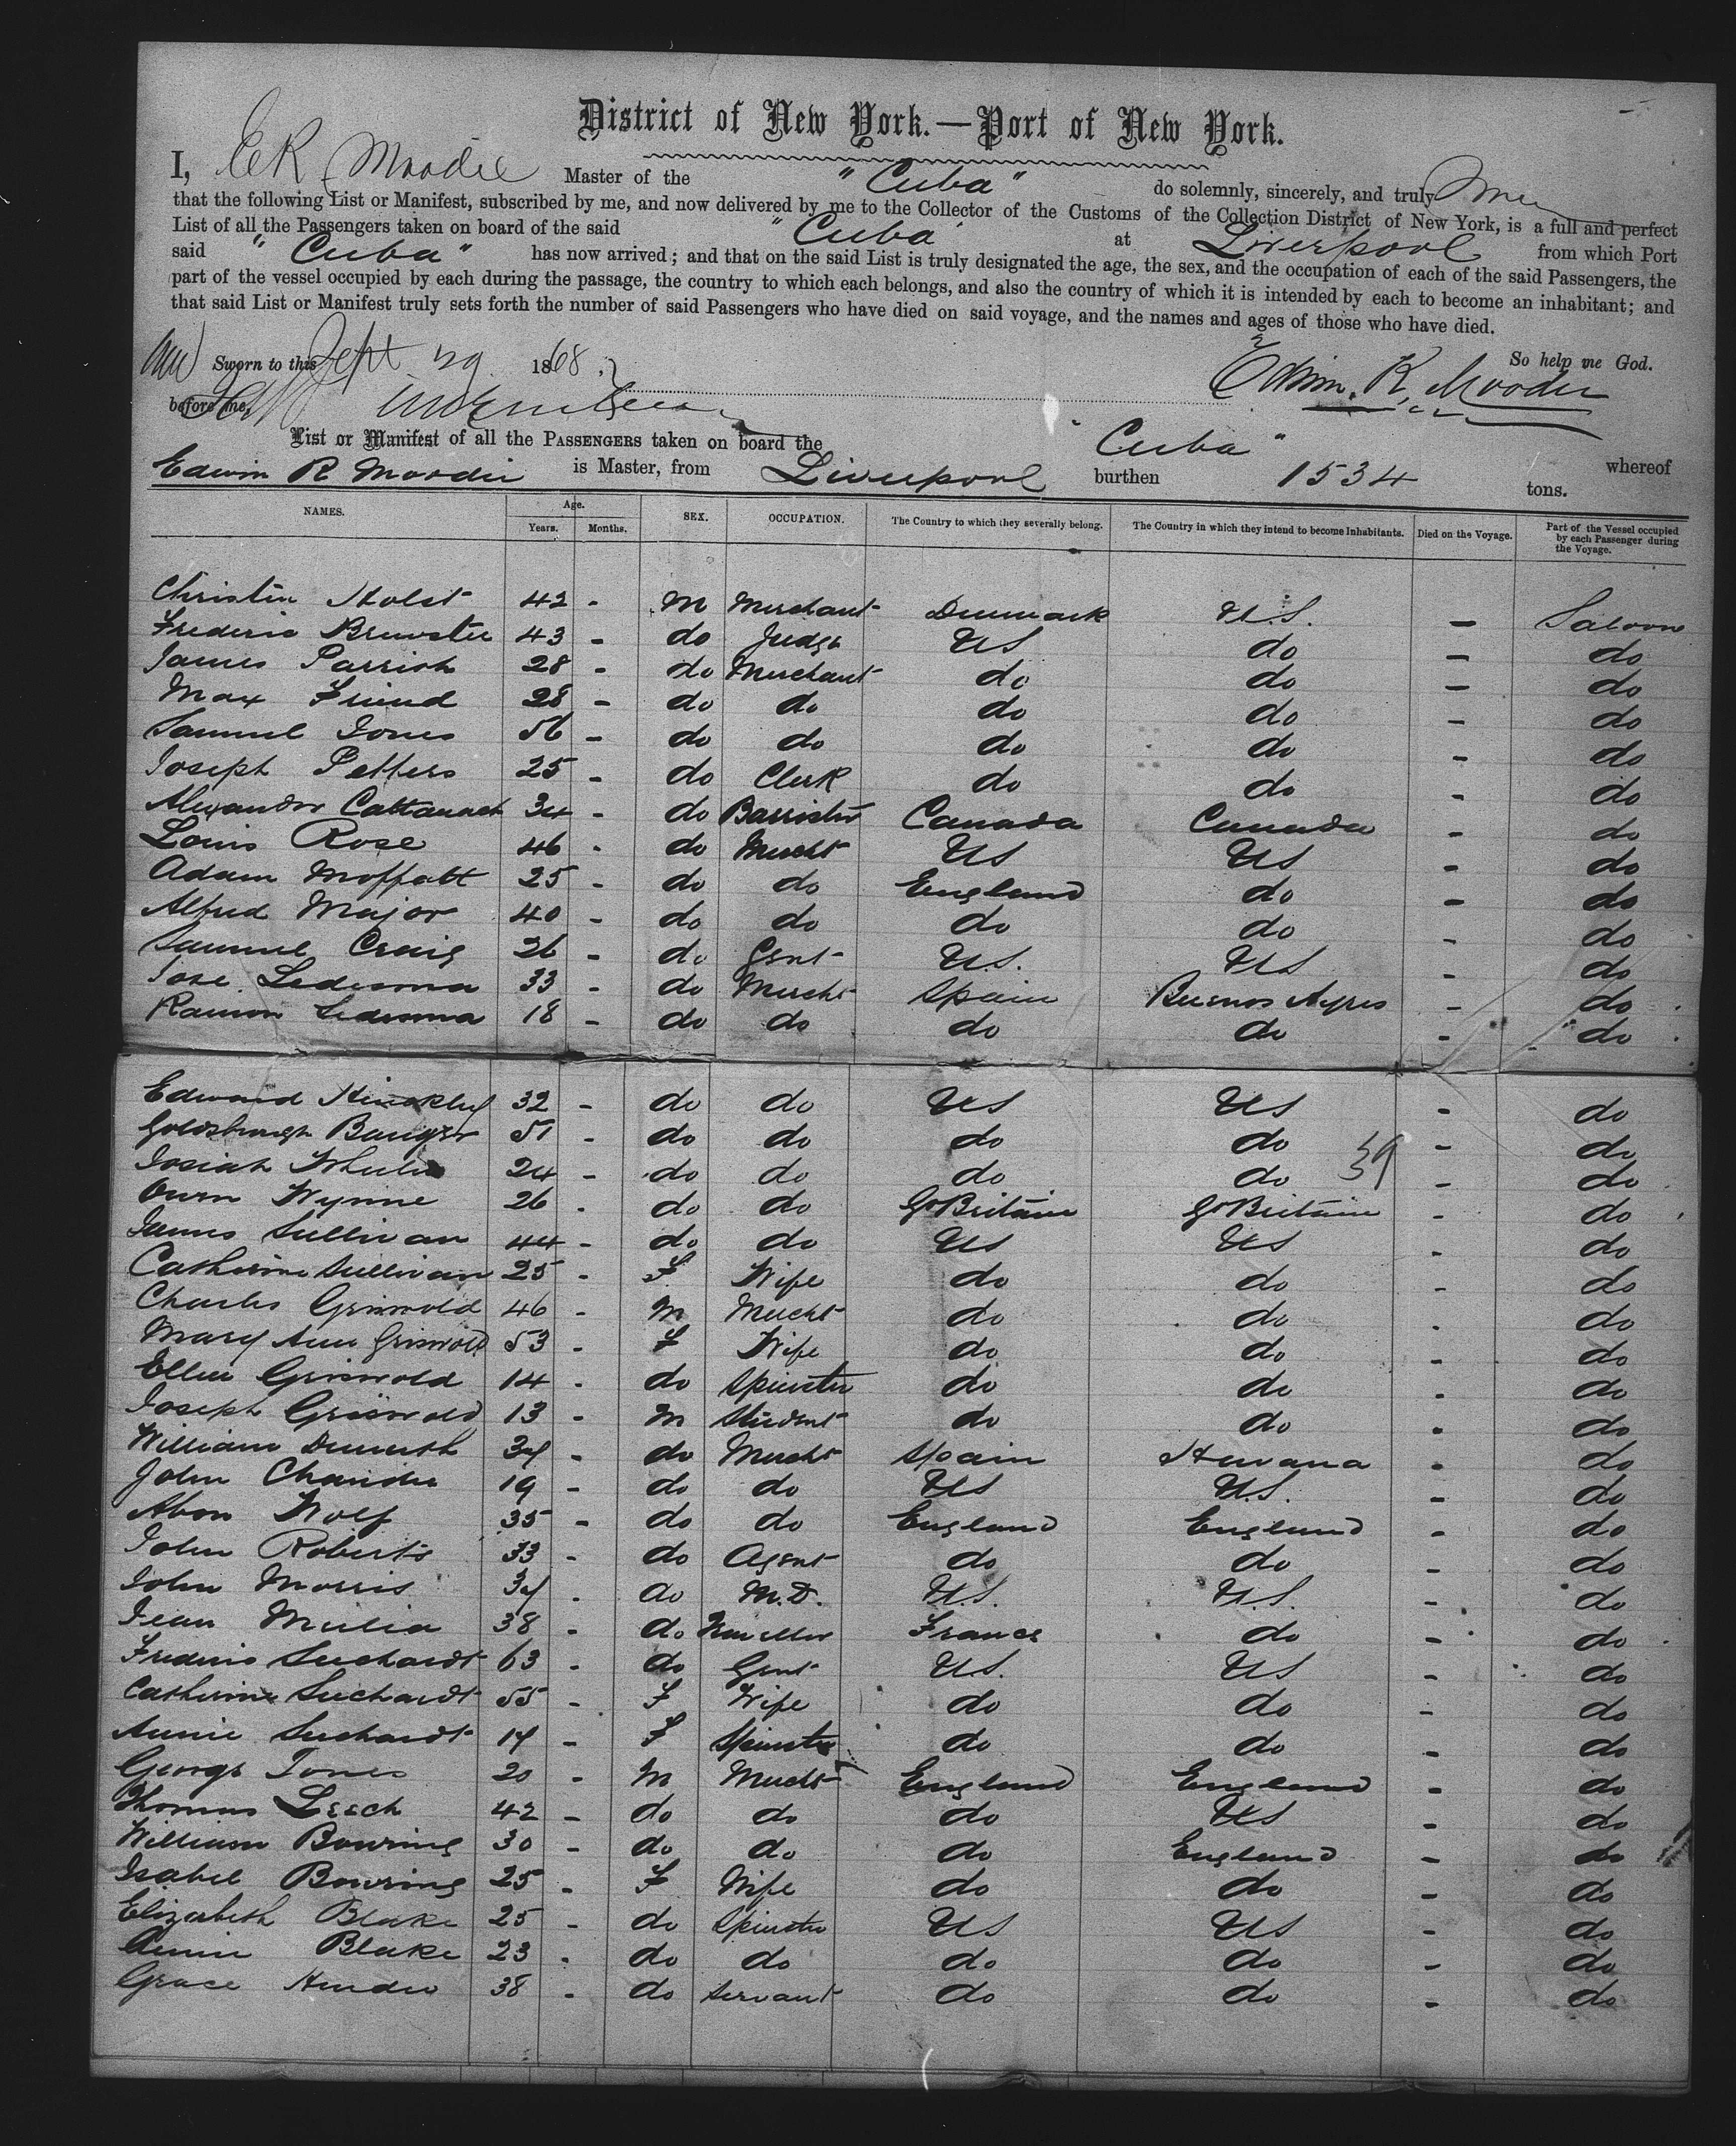 District of New York.—Port of New York.
I, E R Moodie Master of the "Cuba" do solemnly, sincerely, and truly
that the following List or Manifest, subscribed by me, and now delivered by me to the Collector of the Customs of the Collection District of New York, is a full and perfect
List of all the Passengers taken on board of the said "Cuba" at Liverpool from which Port
said "Cuba" has now arrived; and that on the said List is truly designated the age, the sex, and the occupation of each of the said Passengers, the
part of the vessel occupied by each during the passage, the country to which each belongs, and also the country of which it is intended by each to become an inhabitant; and
that said List or Manifest truly sets forth the number of said Passengers who have died on said voyage, and the names and ages of those who have died.
So help me God.
Sworn to this Sept 29 1868. Edwin. R. Moodie
before me,
List or Manifest of all the PASSENGERS taken on board the "Cuba" whereof
Edwin R Moodie is Master, from Liverpool burthen 1534 tons.
NAMES. Age. Years. Months. SEX. OCCUPATION. The Country to which they severally belong. The Country in which they intend to become Inhabitants. Died on the Voyage. Part of the Vessel occupied by each Passenger during the Voyage.
Holst 42 - M Merchant Denmark U.S. - Saloon
Frederic Brewster 43 - do Judge US do - do
James Parrish 28 - do Merchant do do - do
Max Friend 28 - do do do do - do
Samuel Jones 56 - do do do do - do
Joseph Petters 25 - do Clerk do do - do
Alexander Cattanach 34 - do Barrister Canada Canada - do
Louis Rose 46 - do Mercht US US - do
Adam Moffatt 25 - do do England do - do
Alfred Major 40 - do do do do - do
Samuel Craig 26 - do Gent U.S. US - do
Jose Ledesma 33 - do Mercht Spain Buenos Ayres - do
Ramon Ledesma 18 - do do do do - do
Edward Hinckley 32 - do do US US - do
Goldsbrough 51 - do do do do - do
39
Josiah 24 - do do do do - do
Owen Wynne 26 - do do Gt Britain Gt Britain - do
James Sullivan 44 - do do US US - do
Catherine Sullivan 25 - F Wife do do - do
Charles Griswold 46 - M Mercht do do - do
Mary Ann Griswold 53 - F Wife do do - do
Ellen Griswold 14 - do Spinster do do - do
Joseph Griswold 13 - M Student do do - do
William - do Mercht Spain Havana - do
John 19 - do do US U.S. - do
Abon Wolf 35 - do do England England - do
John Roberts 33 - do Agent do do - do
John Morris - do M.D. U.S. U.S. - do
Jean 38 - do France do - do
Frederic Suchardt 63 - do Gent U.S. US - do
Catherine Suchardt 55 - F Wife do do - do
Annie Suchardt - F Spinster do do - do
George Jones 20 - M Mercht England England - do
Thomas Leech 42 - do do do US - do
William Bowring 30 - do do do England - do
Isabel Bowring 25 - F Wife do do - do
Elizabeth Blake 25 - do Spinster US US - do
Annie Blake 23 - do do do do - do
Grace 38 - do Servant do do - do